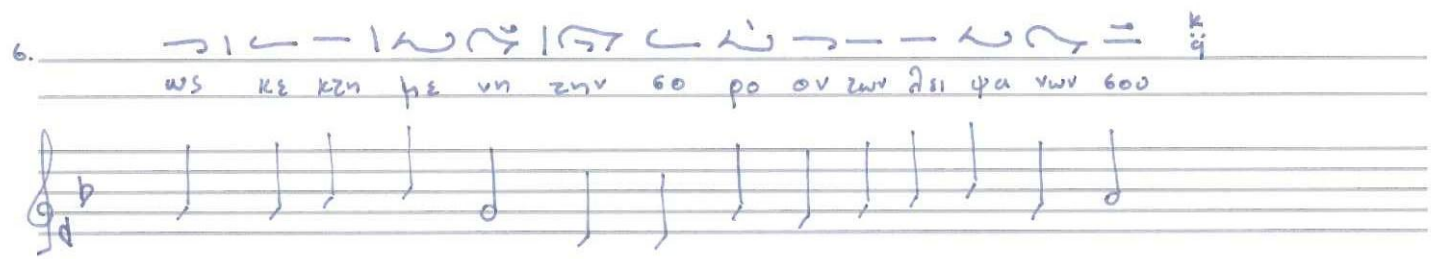 6.
ως κε κτη με νη την σο ρο ον των λει ψα νων σου